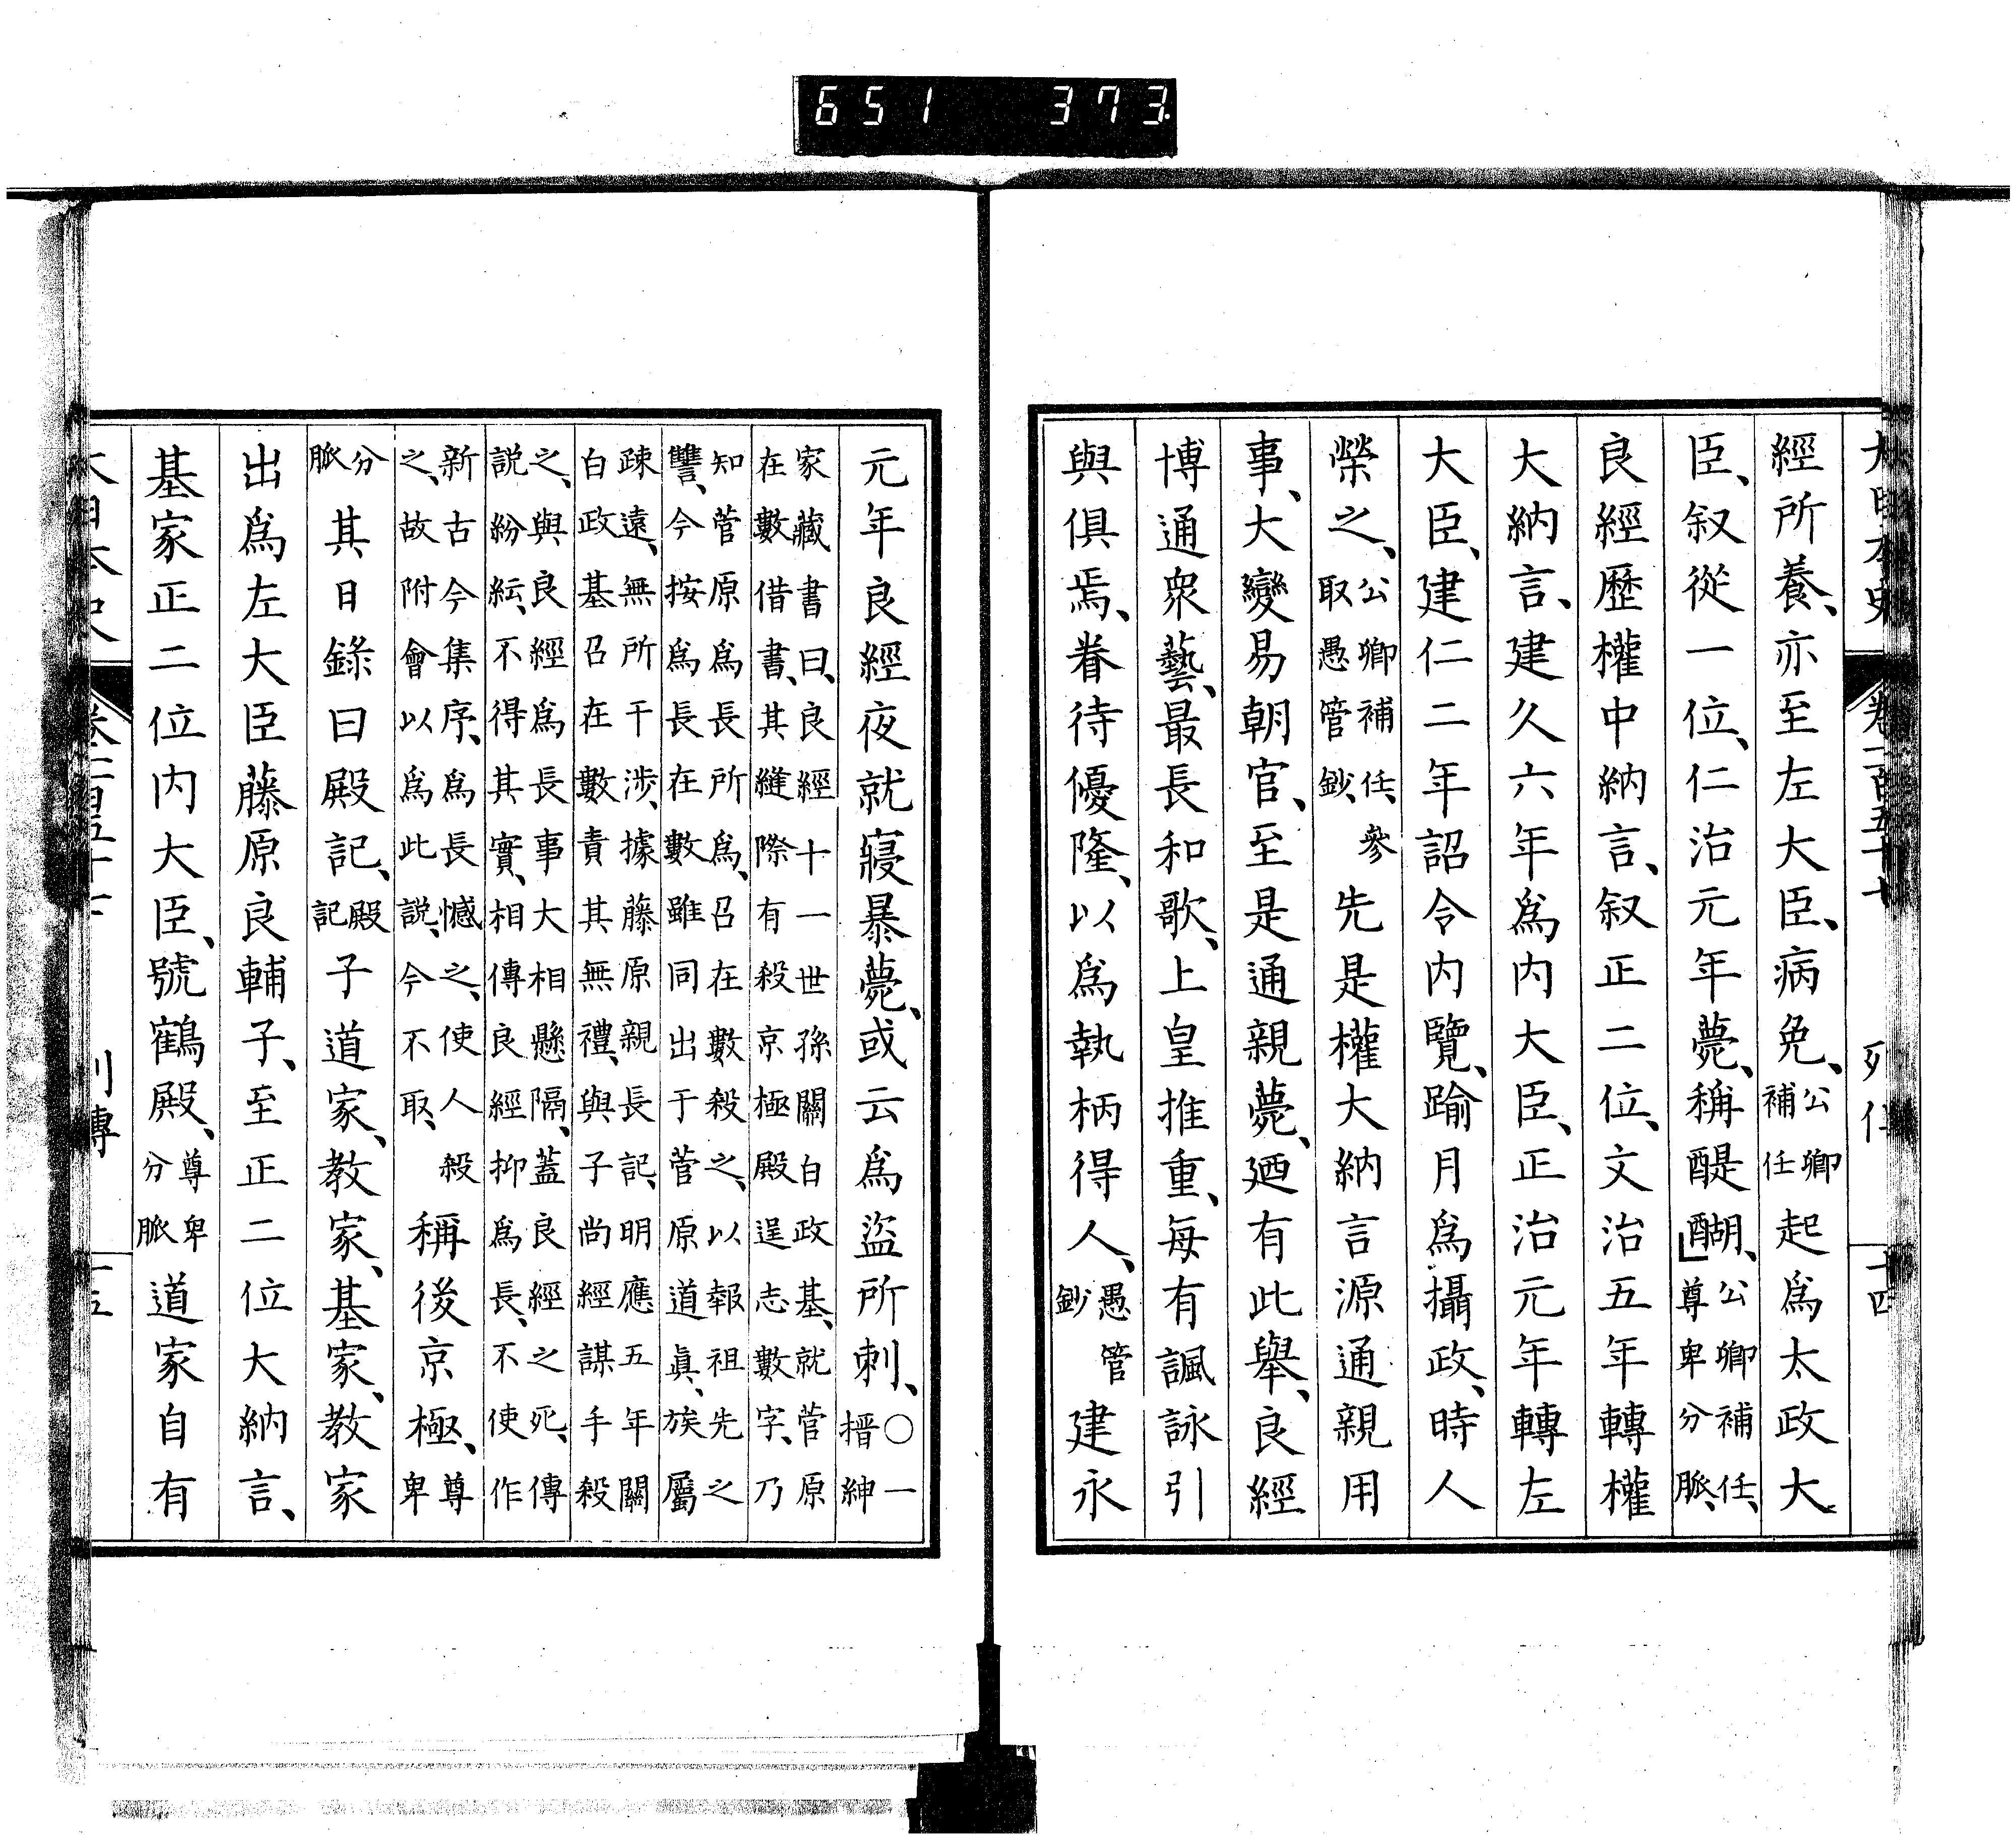 651 373
經所養、亦至左大臣、病免、公卿補任起爲太政大
臣、叙從一位、仁治元年薨、稱醍醐、公卿補任、尊卑分脈、
良經歷權中納言、叙正二位、文治五年轉權
大納言、建久六年爲内大臣、正治元年轉左
大臣、建仁二年詔令内覽、踰月爲攝政、時人
榮之、公卿補任、參取愚管鈔、先是權大納言源通親用
事、大變易朝官、至是通親薨、廼有此舉、良經
博通衆藝、最長和歌、上皇推重、每有諷詠引
與俱焉、眷待優隆、以爲執柄得人、愚管鈔建永
元年良經夜就寢暴薨、或云爲盜所刺、○一搢紳
家藏書曰、良經十一世孫關白政基、就菅原在數借書、其縫際有殺京極殿逞志數字、乃
知菅原爲長所爲、召在數殺之、以報祖先之讐、今按爲長在數雖同出于菅原道眞、族屬
疎遠、無所干渉、據藤原親長記、明應五年關白政基召在數責其無禮、與子尚經謀手殺
之、與良經爲長事大相懸隔、蓋良經之死、傳説紛紜、不得其實、相傳良經抑爲長、不使作
新古今集序、爲長憾之、使人殺之、故附會以爲此説、今不取、稱後京極、尊卑
分脈其日錄曰殿記、殿記子道家、教家、基家、教家
出爲左大臣藤原良輔子、至正二位大納言、
基家正二位内大臣、號鶴殿、尊卑分脈道家自有